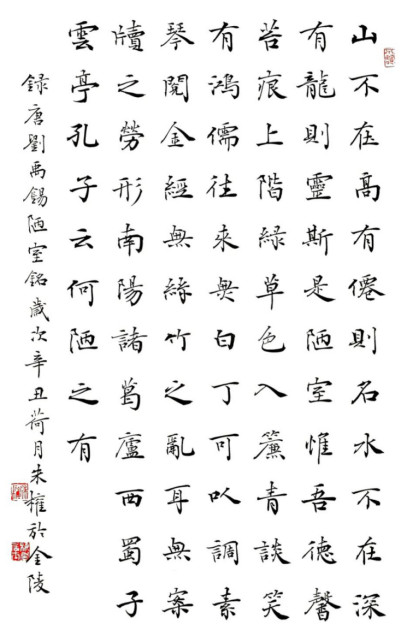 山不在高有僊則名水不在深
有龍則靈斯是陋室惟吾德馨
苔痕上階緑草色入簾青談笑
有鴻儒往來無白丁可以調素
琴閱金經無絲竹之亂耳無案
牘之勞形南陽諸葛廬西蜀子
雲亭孔子云何陋之有
録唐劉禹錫陋室銘歲次辛丑荷月朱於金陵